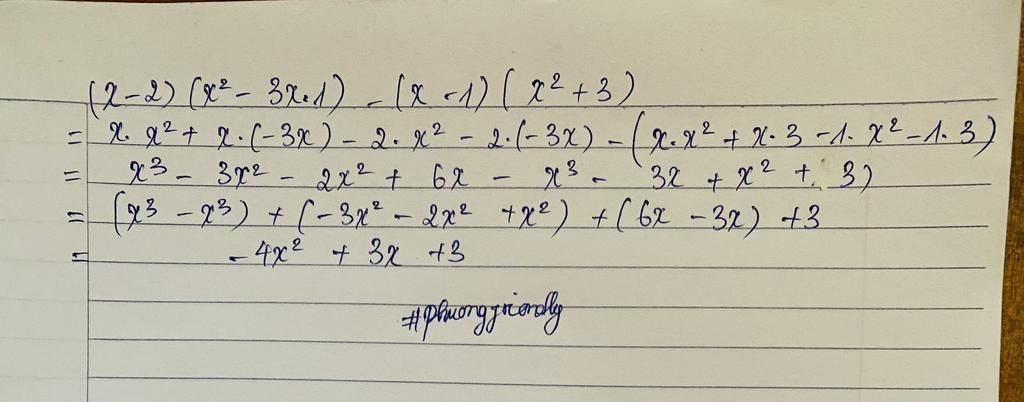 (x-2)(x² - 3x.1) - (x-1)(x²+3)
= x.x² + x.(-3x) - 2.x² - 2.(-3x) - (x.x² + x.3 - 1.x² - 1.3)
= x³ - 3x² - 2x² + 6x - x³ - 3x + x² + 3)
= (x³ - x³) + (-3x² - 2x² + x²) + (6x - 3x) + 3
= -4x² + 3x + 3
#phuongfriendly